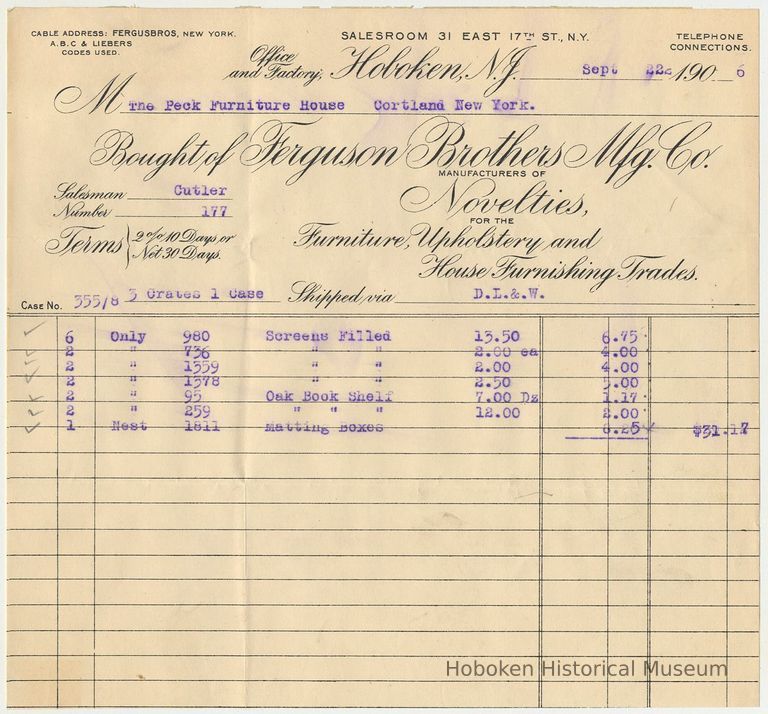 CABLE ADDRESS: FERGUSBROS, NEW YORK.
A.B.C & LIEBERS
CODES USED.
SALESROOM 31 EAST 17TH ST., N.Y.
TELEPHONE
CONNECTIONS.
Office
and Factory, Hoboken, N.J. Sept 22d 190 6
M The Peck Furniture House Cortland New York.
Bought of Ferguson Brothers Mfg. Co.
MANUFACTURERS OF
Novelties,
FOR THE
Furniture, Upholstery and
House Furnishing Trades.
Salesman Cutler
Number 177
Terms { 2% 10 Days, or
Net 30 Days.
CASE No. 355/8 3 Crates 1 Case Shipped via D.L.&.W.
6 Only 980 Screens Filled 13.50 6.75
2 " 736 " " 2.00 ea 4.00
2 " 1559 " " 2.00 4.00
2 " 1578 " " 2.50 5.00
2 " 95 Oak Book Shelf 7.00 Dz 1.17
2 " 259 " " " 12.00 2.00
1 Nest 1811 Matting Boxes 8.25 $31.17
Hoboken Historical Museum